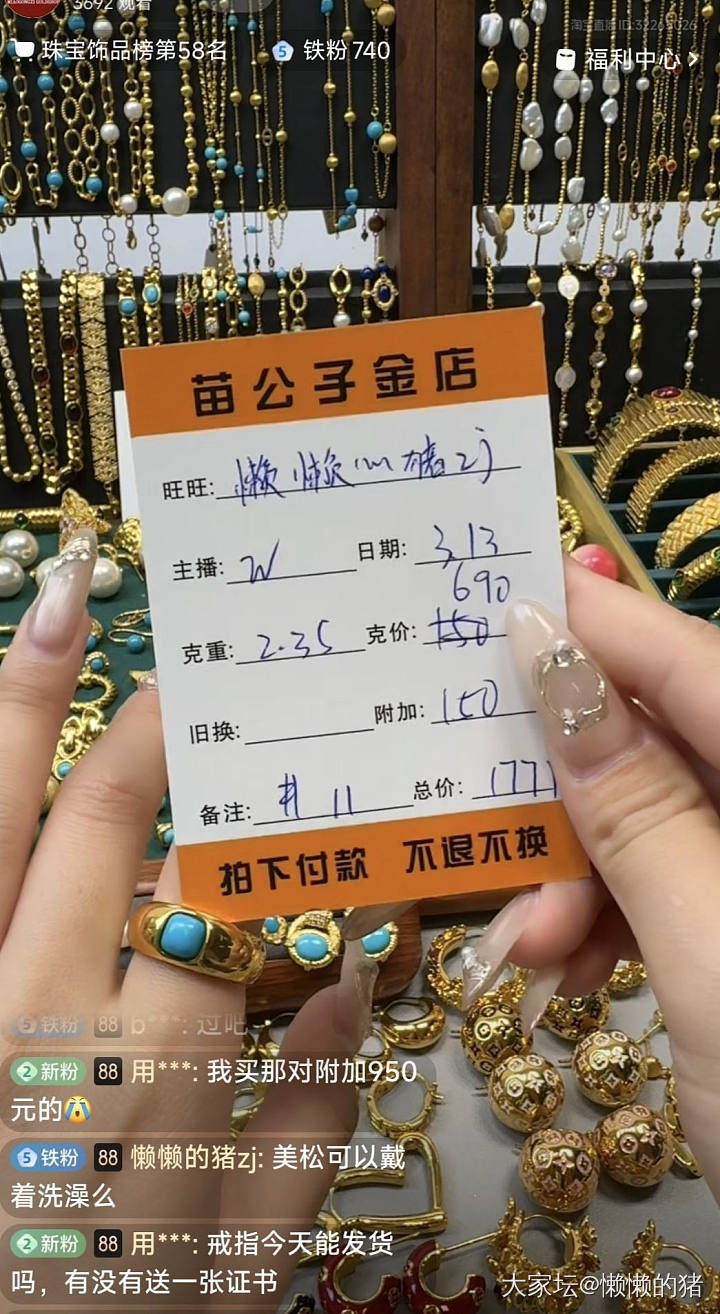 3692 观看
淘宝直播 ID:32262026
珠宝饰品榜第58名
5 铁粉 740
福利中心 >
苗公子金店
旺旺: 懒懒
主播: W 日期: 3.13
690
克重: 2.35 克价: 150
旧换: 附加: 150
备注: # 11 总价: 1771
拍下付款 不退不换
5 铁粉 88 b***: 过吧
2 新粉 88 用***: 我买那对附加950
元的😭
5 铁粉 88 懒懒的猪zj: 美松可以戴
着洗澡么
2 新粉 88 用***: 戒指今天能发货
吗，有没有送一张证书
大家坛@懒懒的猪